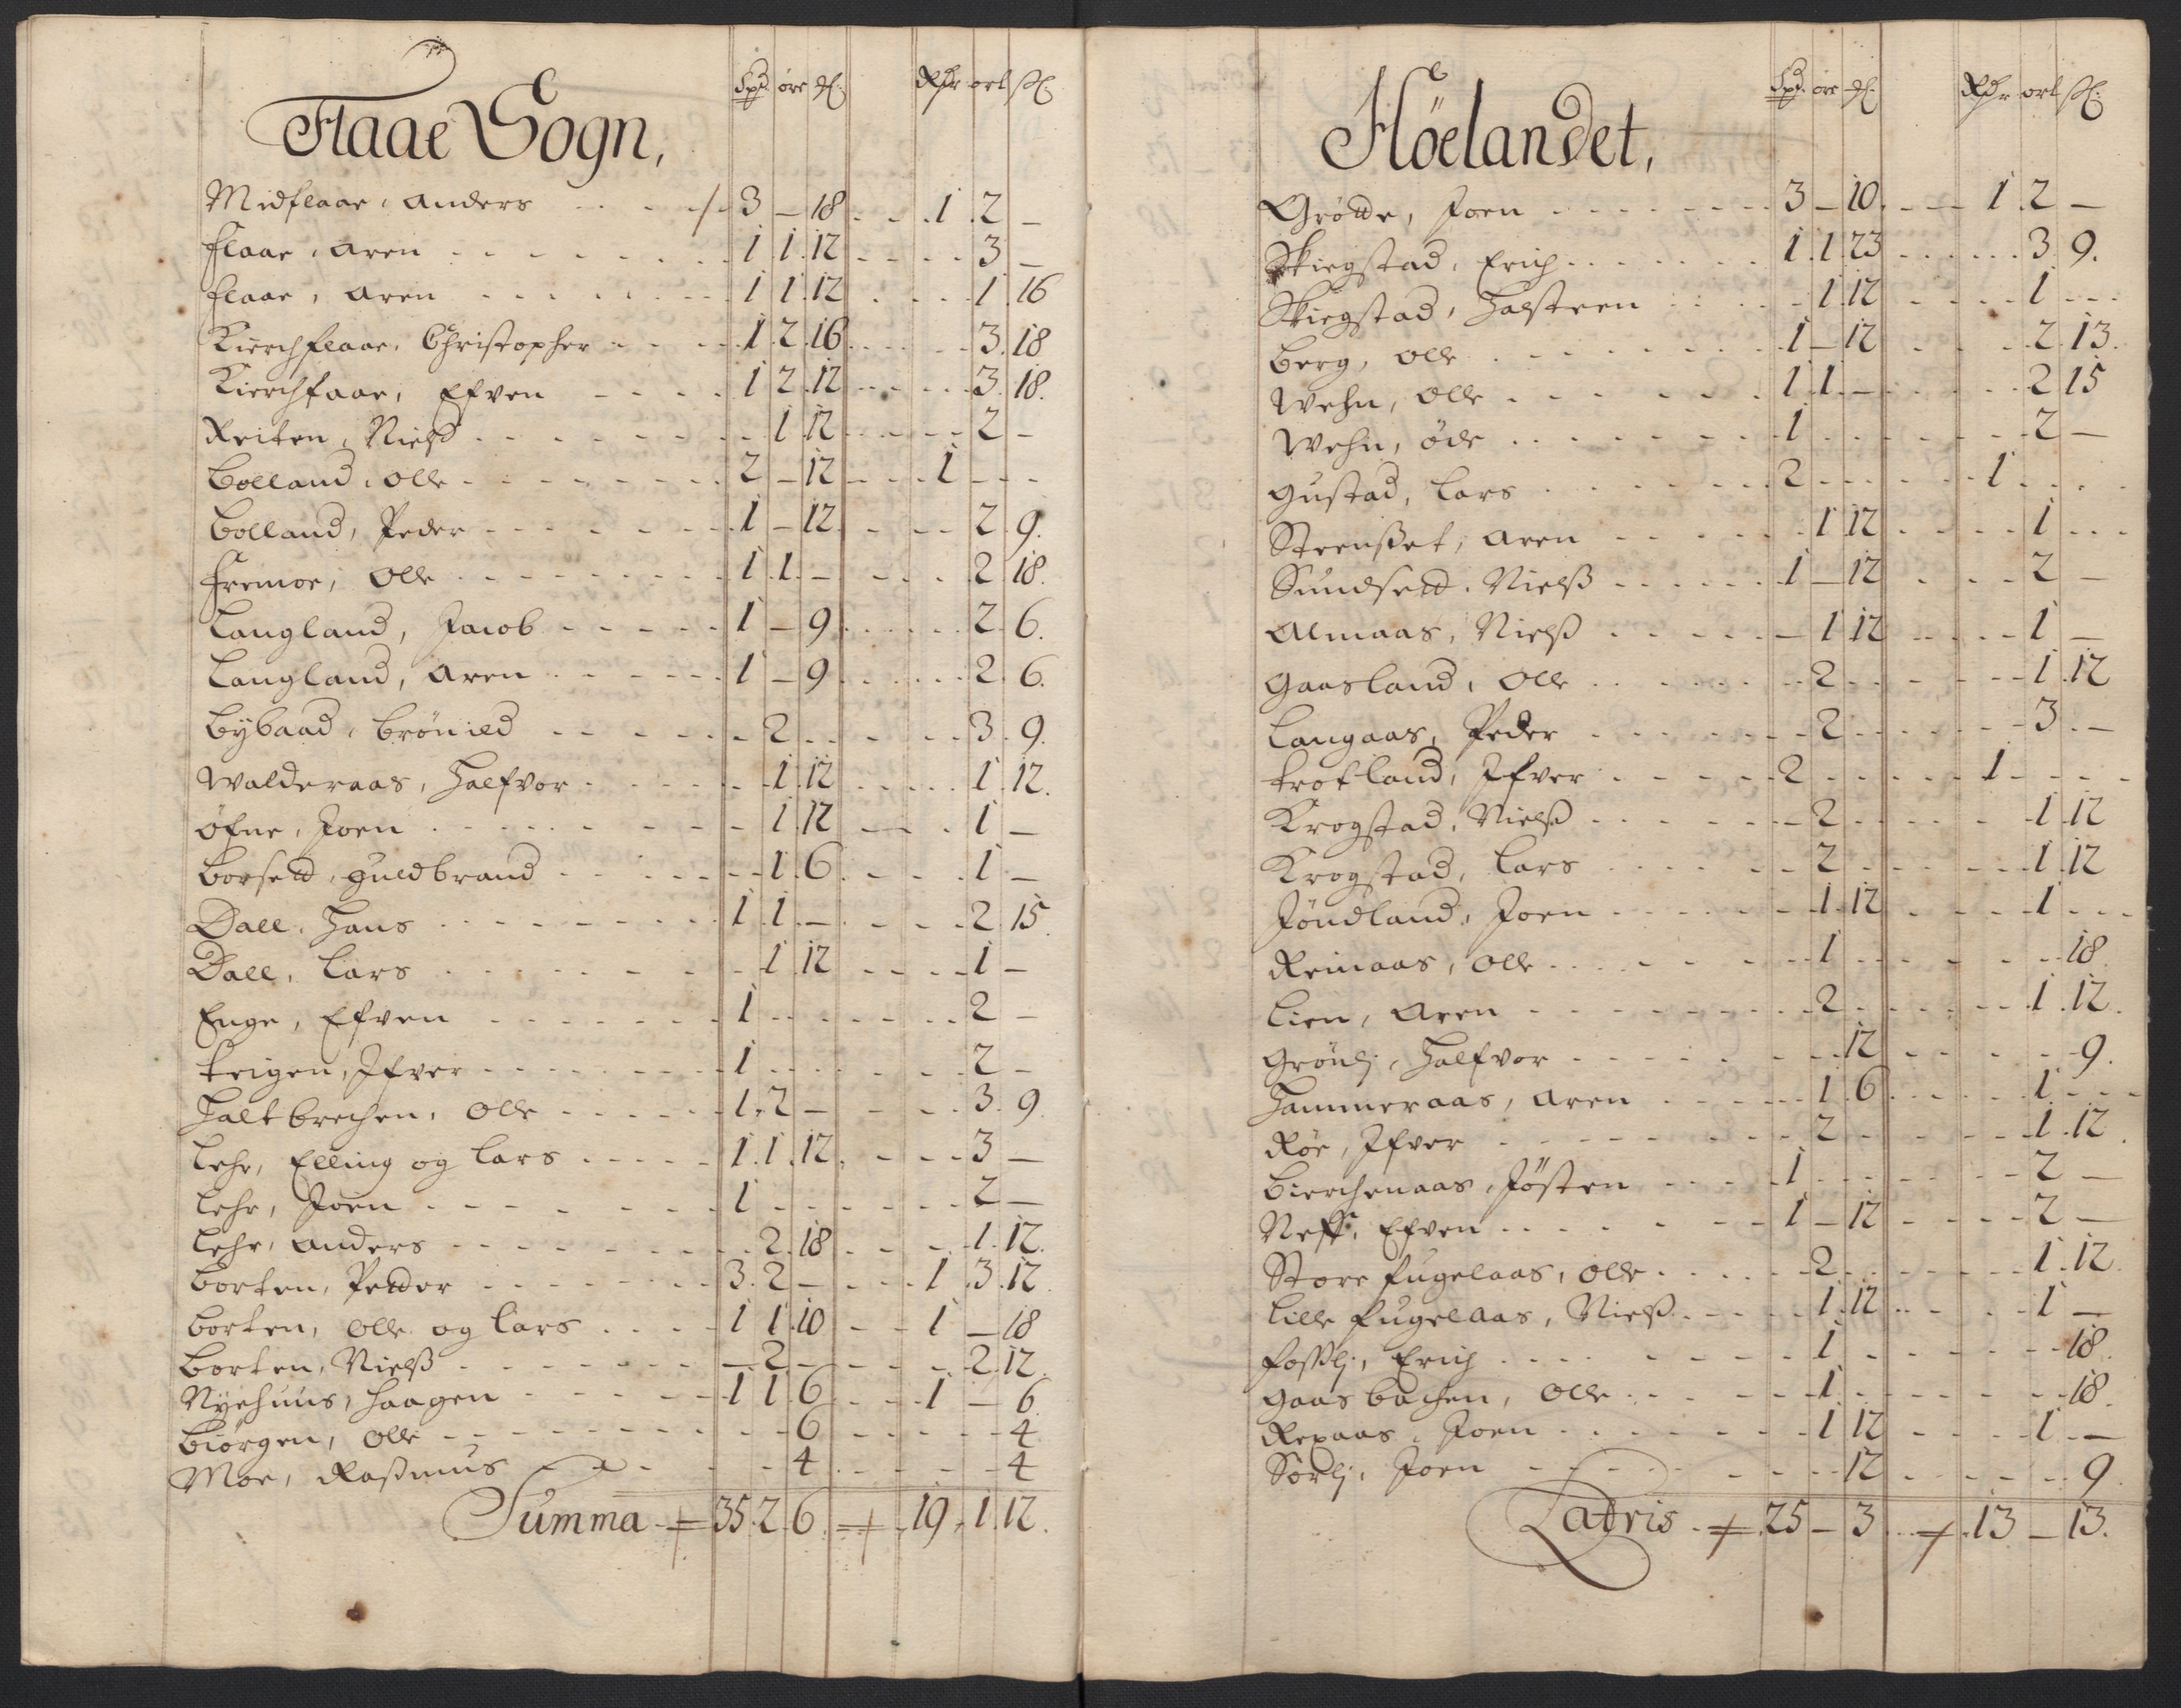 Flaae Sogn,
Spd. øre ₰ Rdr ort ß
Midflaae, Anders 3 – 18 1 2 –
Flaae, Aren 1 1 12 3 –
Flaae, Aren 1 1 12 1 16
Kierchflaae, Christopher 1 2 16 3 18
Kierchfaae, Efven 1 2 12 3 18.
Reiten, Nielß 1 12 2 –
Bolland, Olle 2 – 12 1 – –
Bolland, Peder 1 – 12 2 9.
Fremoe, Olle 1 1 – 2 18.
Langland, Jacob 1 – 9 2 6.
Langland, Aren 1 – 9 2 6.
Bybaad, Brønild 2 3 9.
Walderaas, Halfvor 1 12 1 12.
Øfne, Joen 1 12 1 –
Borsett, Guldbrand 1 6 1 –
Dall, Hans 1 1 – 2 15.
Dall, Lars 1 12 1 –
Enge, Efven 1 2 –
Teigen, Ifver 1 2 –
Haltbrechen, Olle 1 2 – 3 9
Lehr, Elling og Lars 1 1 12 3 –
Lehr, Joen 1 2 –
Lehr, Anders 2 18 1 12.
Borten, Petter 3 2 – 1 3 12
Borten, Olle og Lars 1 1 10 1 – 18
Borten, Nielß – 2 – 2 12.
Nyehuus, Haagen 1 1 6 1 – 6
Biørgen, Olle 6 4
Moe, Raßmus 4 4
Summa 35 2 6 19 1 12.
Höelandet,
Spd. øre ₰ Rdr ort ß
Grøtte, Joen 3 – 10 1 2 –
Skiegstad, Erich 1 1 23 3 9.
Skiegstad, Halsteen 1 12 1 – –
Berg, Olle 1 – 12 2 13.
Wehn, Olle 1 1 – 2 15
Wehn, Øde 1 2 –
Gustad, Lars 2 1
Steenßet, Aren 1 12 1
Sundsett, Nielß 1 – 12 2 –
Almaas, Nielß – 1 12 1 –
Gaasland, Olle 2 1 12
Langaas, Peder 2 3 –
Trotland, Ifver 2 1
Krogstad, Nielß 2 1 12
Krogstad, Lars 2 1 12
Jøndland, Joen 1 12 1
Reinaas, Olle 1 18.
Lien, Aren 2 1 12.
Grønlj, Halfvor 12 9.
Hammeraas, Aren 1 6 1
Røe, Ifver 2 1 12.
Bierchenaas, Jøsten 1 2 –
Neff, Efven 1 – 12 2 –
Store Fugelaas, Olle 2 1 12
Lille Fugelaas, Nielß 1 12 1 –
Foßlj, Erich 1 18.
Gaasbachen, Olle 1 18.
Repaas, Joen 1 12 1 –
Sørlj, Joen 12 9.
Latris 25 – 3 13 – 13.